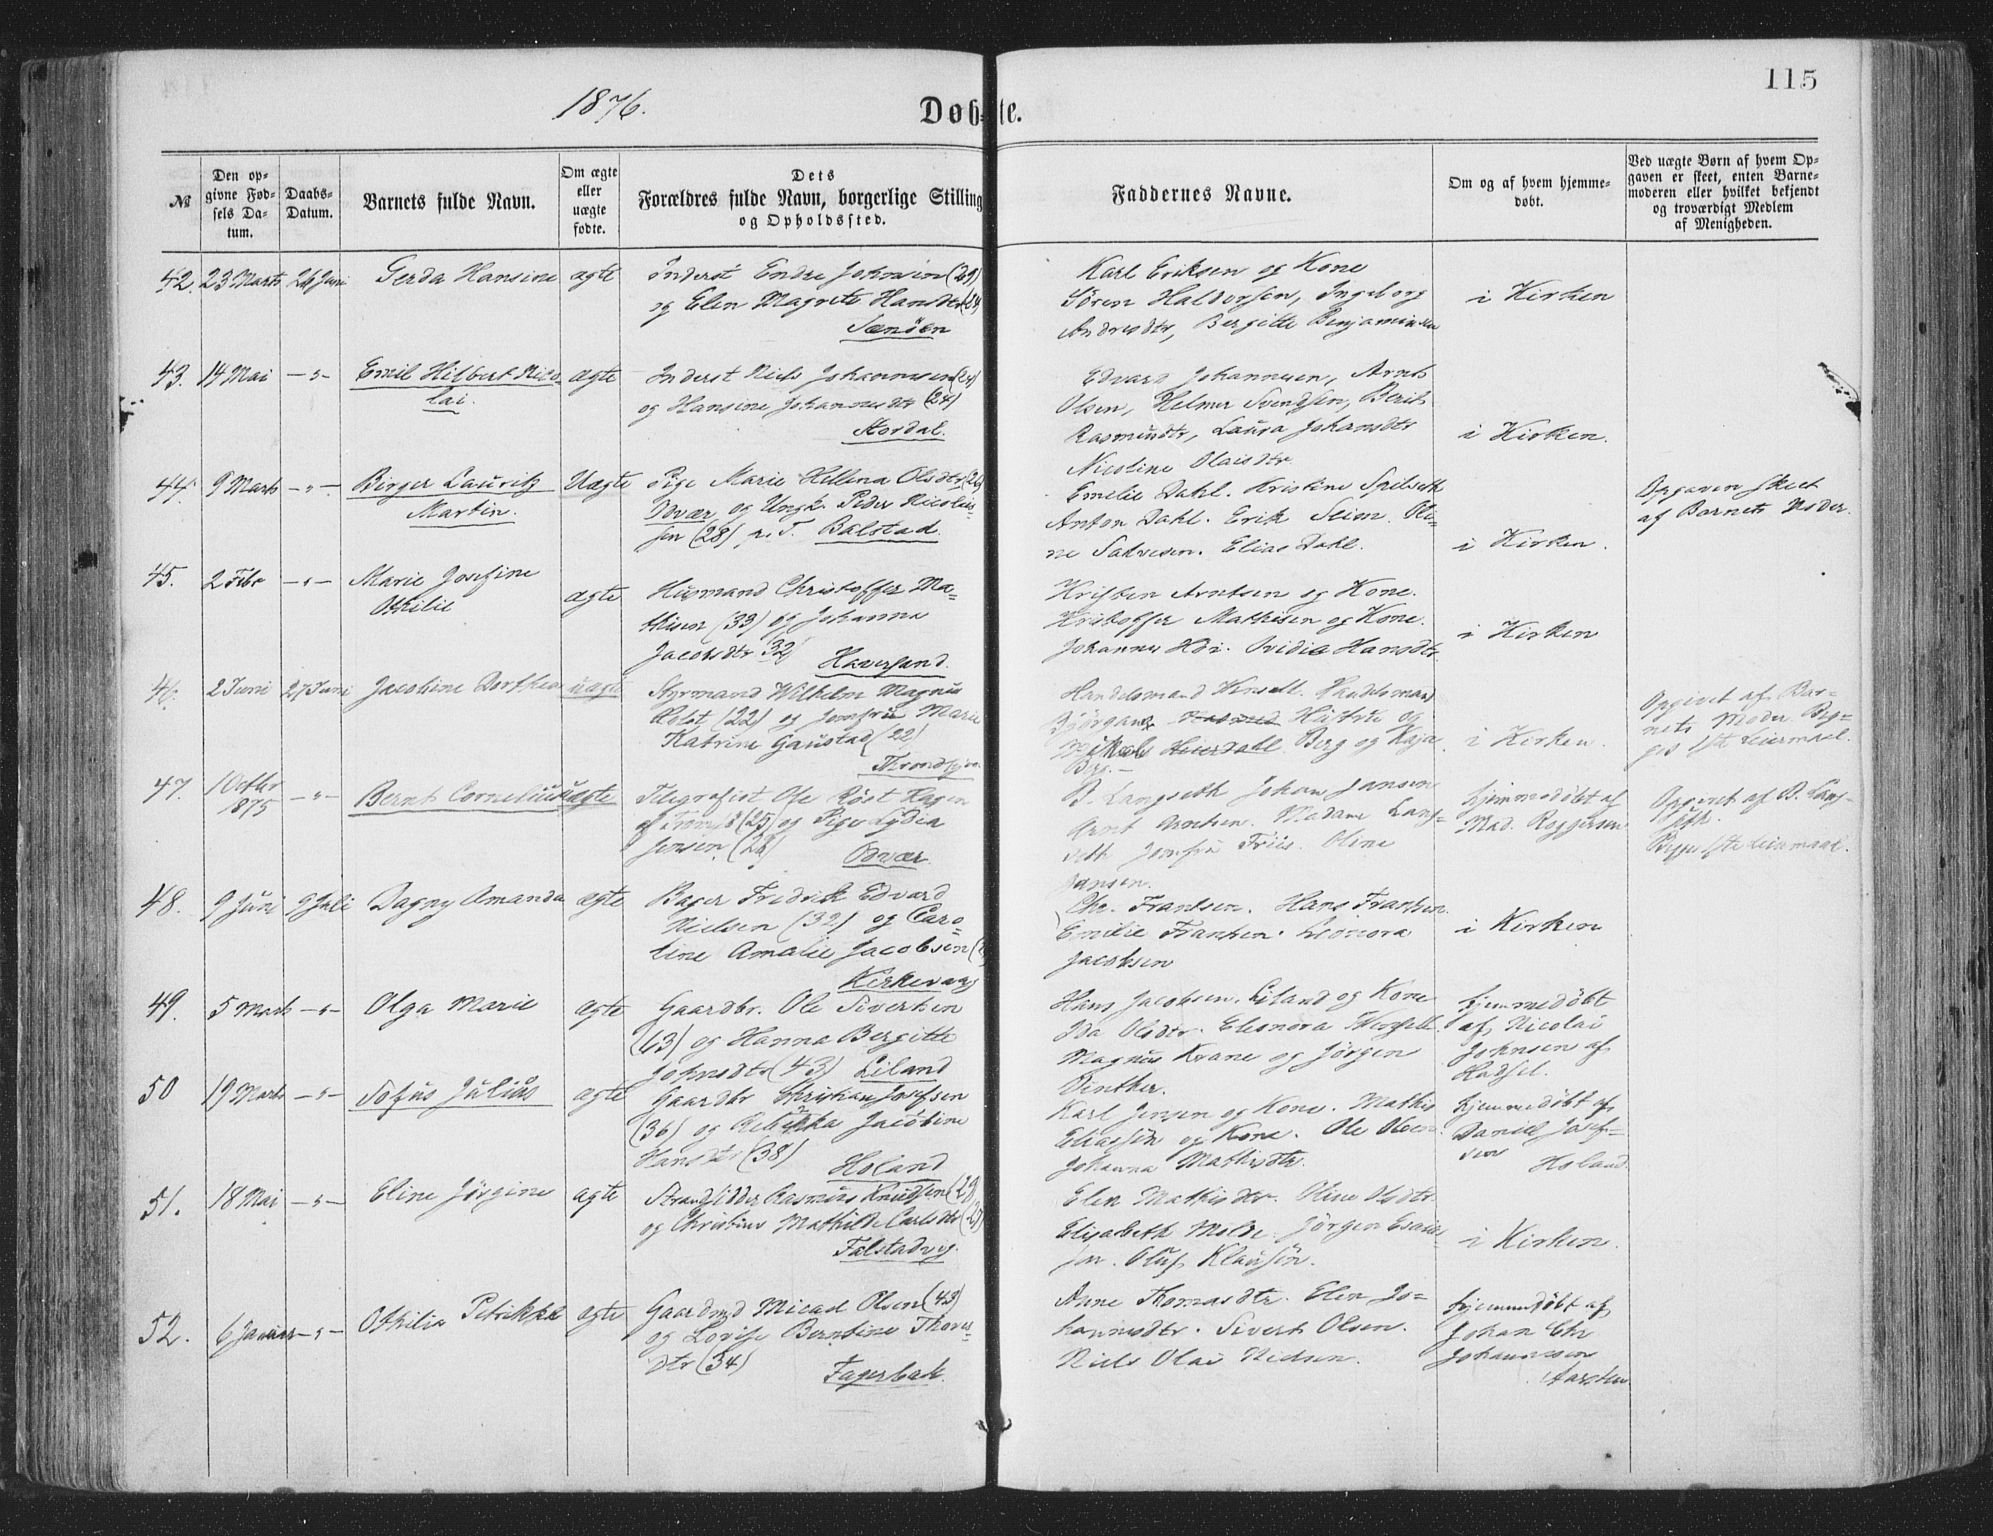 115
1876.
Døbte.
№
Den op-
givne Fød-
sels Da-
tum.
Daabs-
Datum.
Barnets fulde Navn.
Om ægte
eller
uægte
fødte.
Dets
Forældres fulde Navn, borgerlige Stilling
og Opholdssted.
Faddernes Navne.
Om og af hvem hjemme-
døbt.
Ved uægte Børn af hvem Op-
gaven er skeet, enten Barne-
moderen eller hvilket bekjendt
og troværdigt Medlem
af Menigheden.
42. 23 Marts 26 Juni Gerda Hansine ægte
Inderst Endre Johnsen (29)
og Elen Magrete Hansdtr (24
Karl Eriksen og Kone
Sören Haldorsen, Ingeborg
Andrsdtr, Bergitte Benjaminsen
i Kirken
43. 14 Mai —"— Emil Hilbert Nico-
lai.
ægte
Inderst Niels Johannesen
og Hansine Johannesdtr (24)
Stordal.
Edvard Johannesen, Arnt
Olsen, Helmer Svendsen, Berit
Rasmusdtr, Laura Johansdtr
Nicoline Olaisdtr.
i Kirken.
44. 9 Marts —"— Birger Lauritz
Martin.
Uægte
Pige Marie Hellena Olsdtr
og Ungk. Peder Nicolais-
sen (28) p. T. Balstad.
Emelie Dahl. Kristine
Anton Dahl. Erik Seim. Oli-
ne Salvesen. Elias Dahl.
i Kirken.
Opgaven skeet
af Barnets Moder.
45. 2 Febr —"— Marie Josefine
Othilie
ægte
Husmand Christoffer Ma-
thisen (33) og Johanna
Jacobsdtr 32)
Haversand.
Kristen Arntsen og Kone.
Kristoffer Mathisen og Kone.
Ovidia Hansdtr.
i Kirken
46. 2 Juni 27 Juni Jacobine Dorthea uægte
Styrmand Wilhelm Magnus
Holst (22) og Jomfru Marie
Katrine Gaustad (22)
Throndhjem
Handelsmand
Berg og Kaja
Berg.—
i Kirken.
Opgivet af Bar-
nets Moder. Beg-
ges 1ste Leiermaal.
47. 1 Octbr
1875
—"— Bernt Cornelius uægte
Telegrafist Ole Röst Hagen
(25) og Pige Lydia
Jensen. (26)
B. Langseth Johan Jansen
Arnt Arntsen. Madame Lang-
seth Jomfru Friis. Oline
Jansen.
hjemmedöbt af
Mad. Roggersen
Opgivet af B. Lang-
seth.
Begges 1ste Leiermaal.
48. 9 Juni 9 Juli Dagny Amanda ægte
Bager Fredrik Edvard
Nielsen (32) og Caro-
line Amalie Jacobsen
Kirkevaag
Chr. Frantsen. Hans Frantsen.
Emilie Frantsen. Leonora
Jacobsen
i Kirken
49. 5 Marts —"— Olga Marie ægte
Gaardbr. Ole Sivertsen
(63) og Hanna Bergitte
Johnsdtr (43) Liland
Hans Jacobsen. Liland og Kone
Ida Olsdtr. Eleonora
Magnus Krane og Jörgen
Vinther.
hjemmedöbt
af Nicolai
Johnsen af
Hadsel.
50 19 Marts —"— Tofus Julius ægte
Gaardbr Christian Josefsen
(36) og Rebekka Jacobine
Hansdtr (38)
Holand
Karl Jensen og Kone. Mathis
Eliassen og Kone. Ole Olsen
Johanna Mathisdtr.
hjemmedöbt af
Daniel Josef-
sen
Holand.
51. 18 Mai —"— Eline Jörgine ægte
Strandsidder Rasmus Knudsen (29)
og Christine Mathilde Carlsdtr
Falstadvg.
Elen Mathisdtr. Oline Olsdtr.
Elisabeth Molde. Jörgen Esaies-
sen. Oluf Klausen.
i Kirken.
52. 6 Januar —"— Othilia Petrikka ægte
Gaardmd Micael Olsen (43)
og Lovise Berntine Thores-
dtr (34)
Fagerbak.
Anne Thomasdtr. Elen Jo-
hannesdtr. Sivert Olsen.
Niels Olai Nielsen.
hjemmedöbt af
Johan Chr
Johannesen